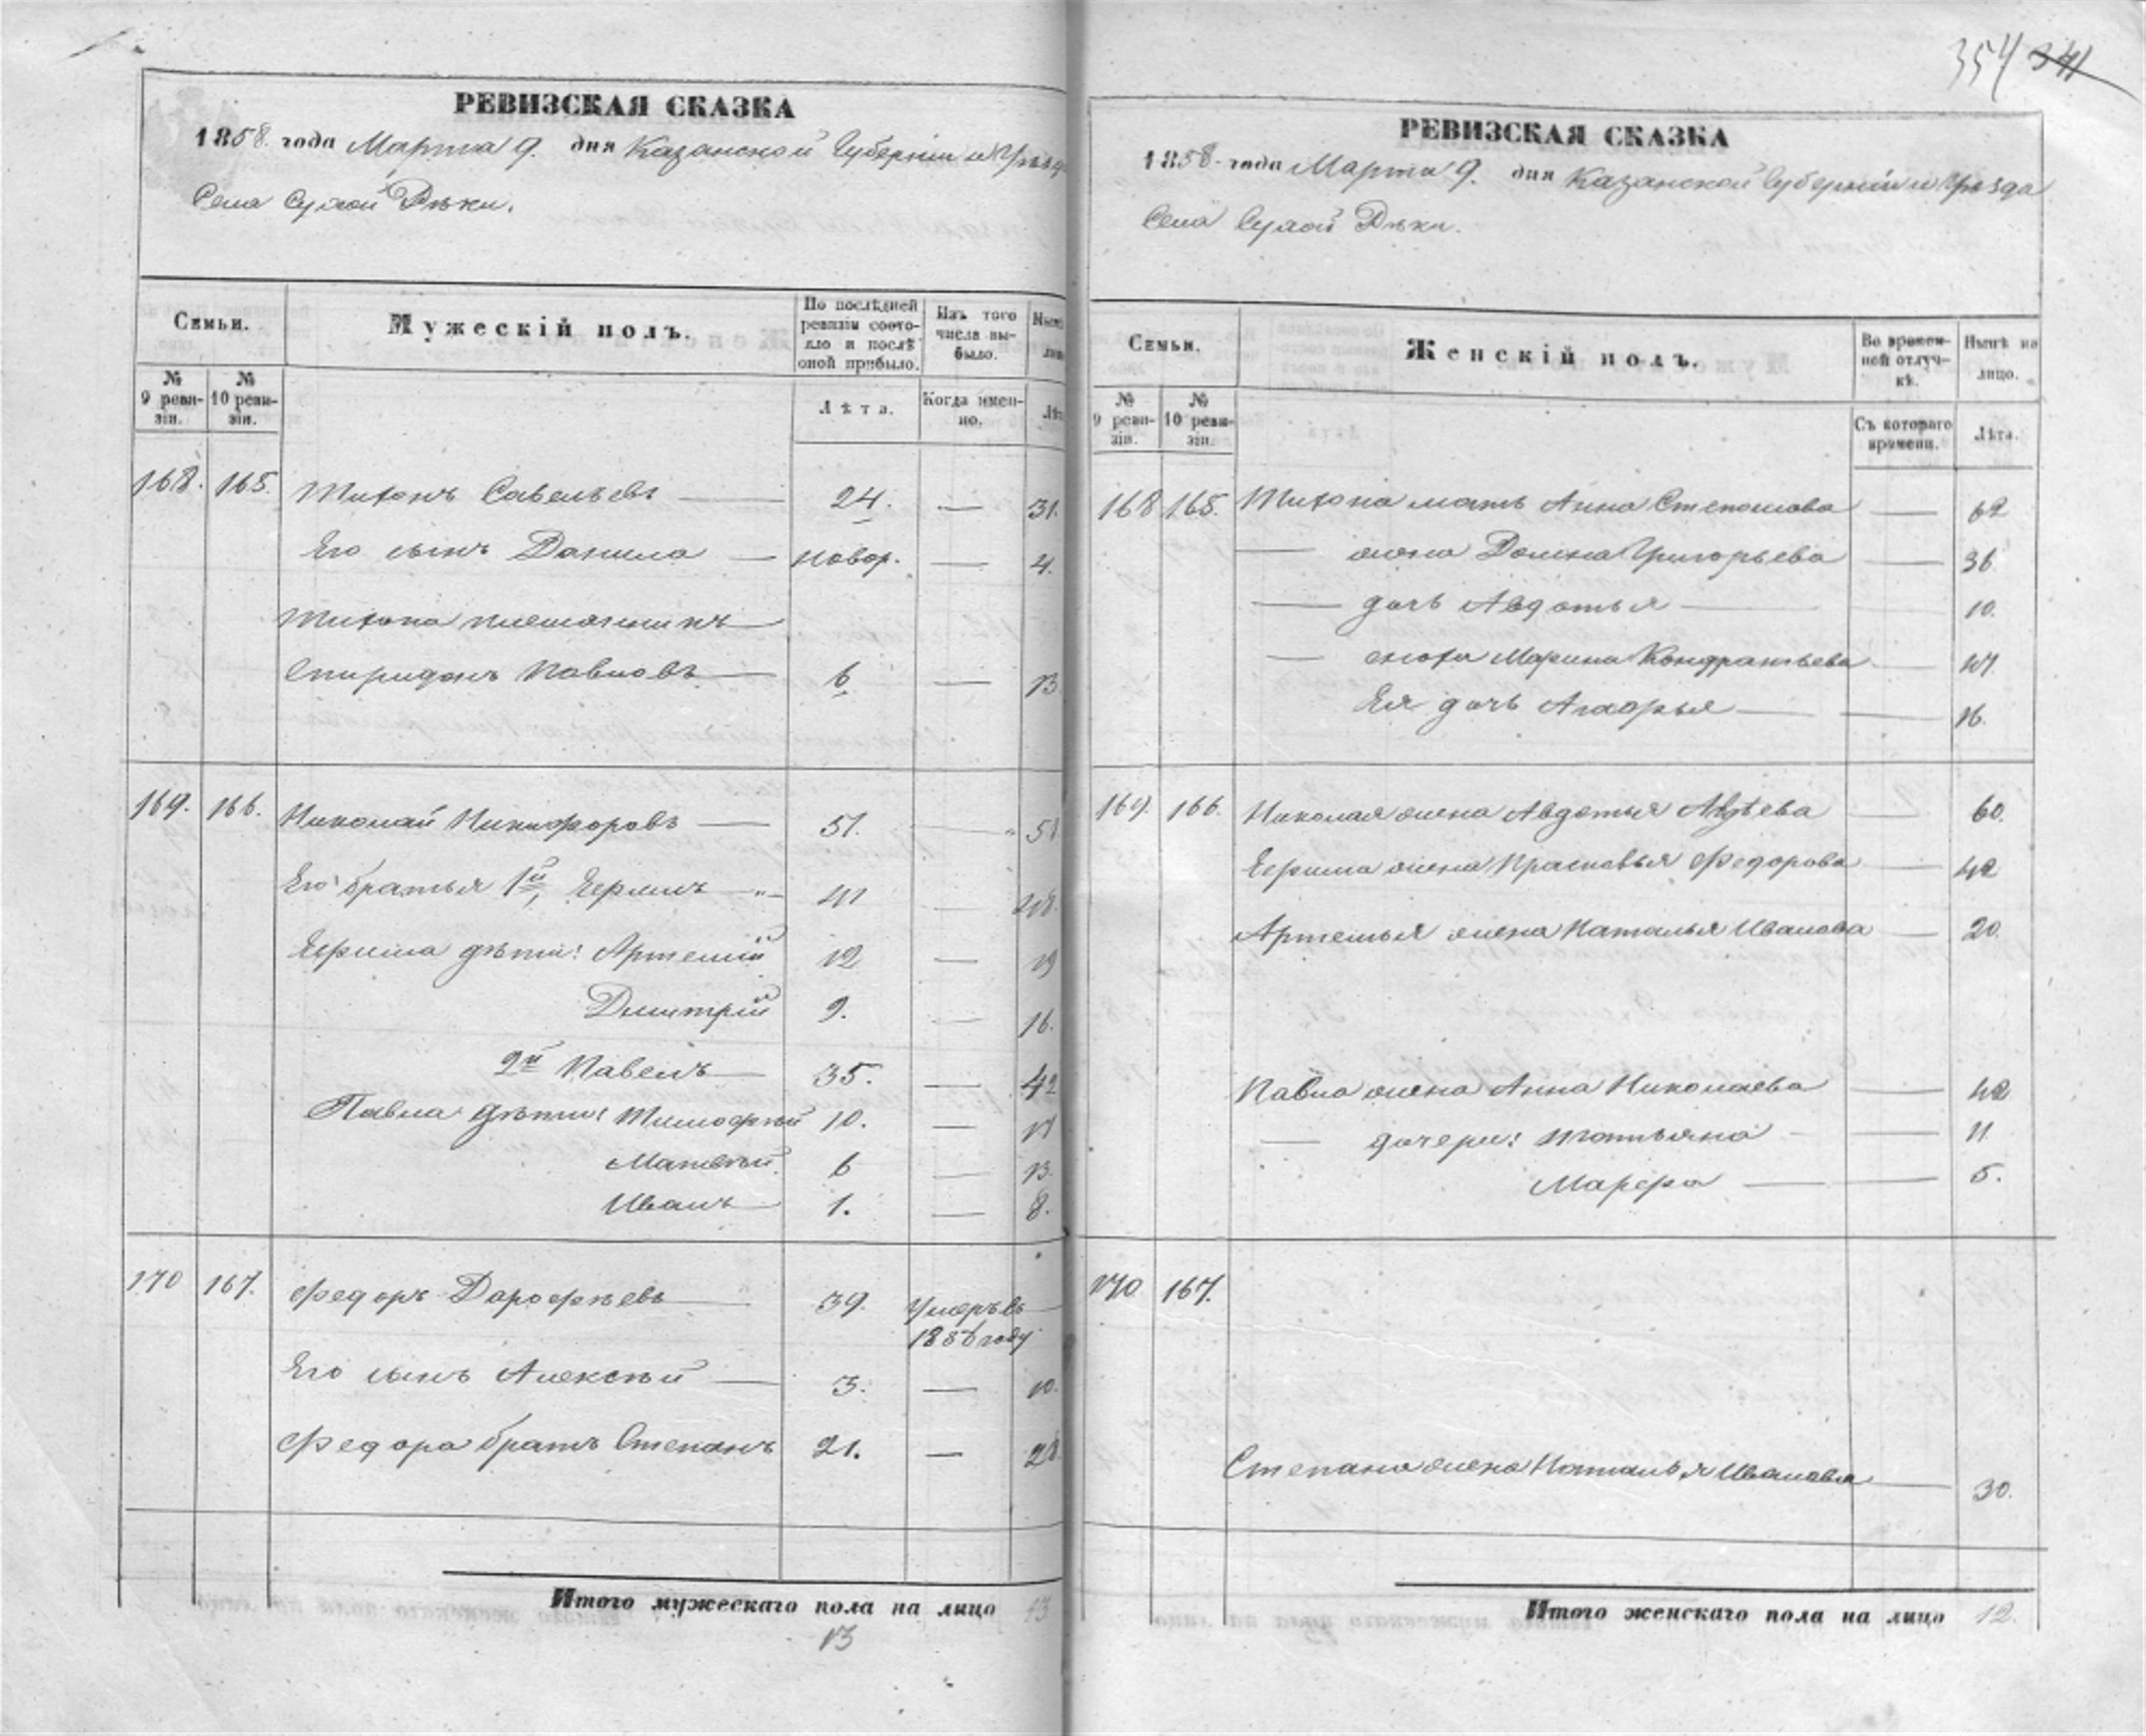 354 341
РЕВИЗСКАЯ СКАЗКА
1858. года Марта 9. дня Казанской Губерніи и Уѣзда
Села Сухой Рѣки.
Семьи. Мужескій полъ. По послѣдней ревизіи состояло и послѣ оной прибыло. Изъ того числа выбыло. Нынѣ лицо
№ 9 ревизіи. № 10 ревизіи. Лѣта. Когда именно. Лѣт
168. 165. Тихонъ Савельевъ 24. — 31.
Его сынъ Данила новор. — 4.
Тихона племянникъ
Спиридонъ Павловъ 6 — 13
169. 166. Николай Никифоровъ 51. — 58
Его братья 1й, Ефимъ 41 — 48.
Ефима дѣти: Артемій 12 — 19
Дмитрій 9. — 16.
2й Павелъ 35. — 42
Павла дѣти: Тимофѣй 10. — 17
Матвѣй 6 — 13.
Иванъ 1. — 8.
170 167. Федоръ Дорофѣевъ 39. Умеръ въ
1856 году
Его сынъ Алексѣй 3. — 10.
Федора братъ Степанъ 21. — 28
Итого мужескаго пола на лицо 13
13
РЕВИЗСКАЯ СКАЗКА
1858 года Марта 9. дня Казанской Губерніи и Уѣзда
Села Сухой Рѣки.
Семьи. Женскій полъ. Во временной отлучкѣ. Нынѣ на лицо.
№ 9 ревизіи. № 10 ревизіи. Съ котораго времени. Лѣта.
168 165. Тихона мать Анна Степанова — 62
— жена Домна Григорьева — 36
— дочь Авдотья — 10.
— сноха Марина Кондратьева — 47.
Ея дочь — 16.
169. 166. Николая жена Авдотья Авдѣева — 60.
Ефима жена Прасковья Федорова — 42
Артемья жена Наталья Иванова — 20.
Павла жена Анна Николаева — 42
— дочери: Татьяна — 11
Марфа — 5.
170 167.
Степана жена Наталья Иванова — 30.
Итого женскаго пола на лицо 12.